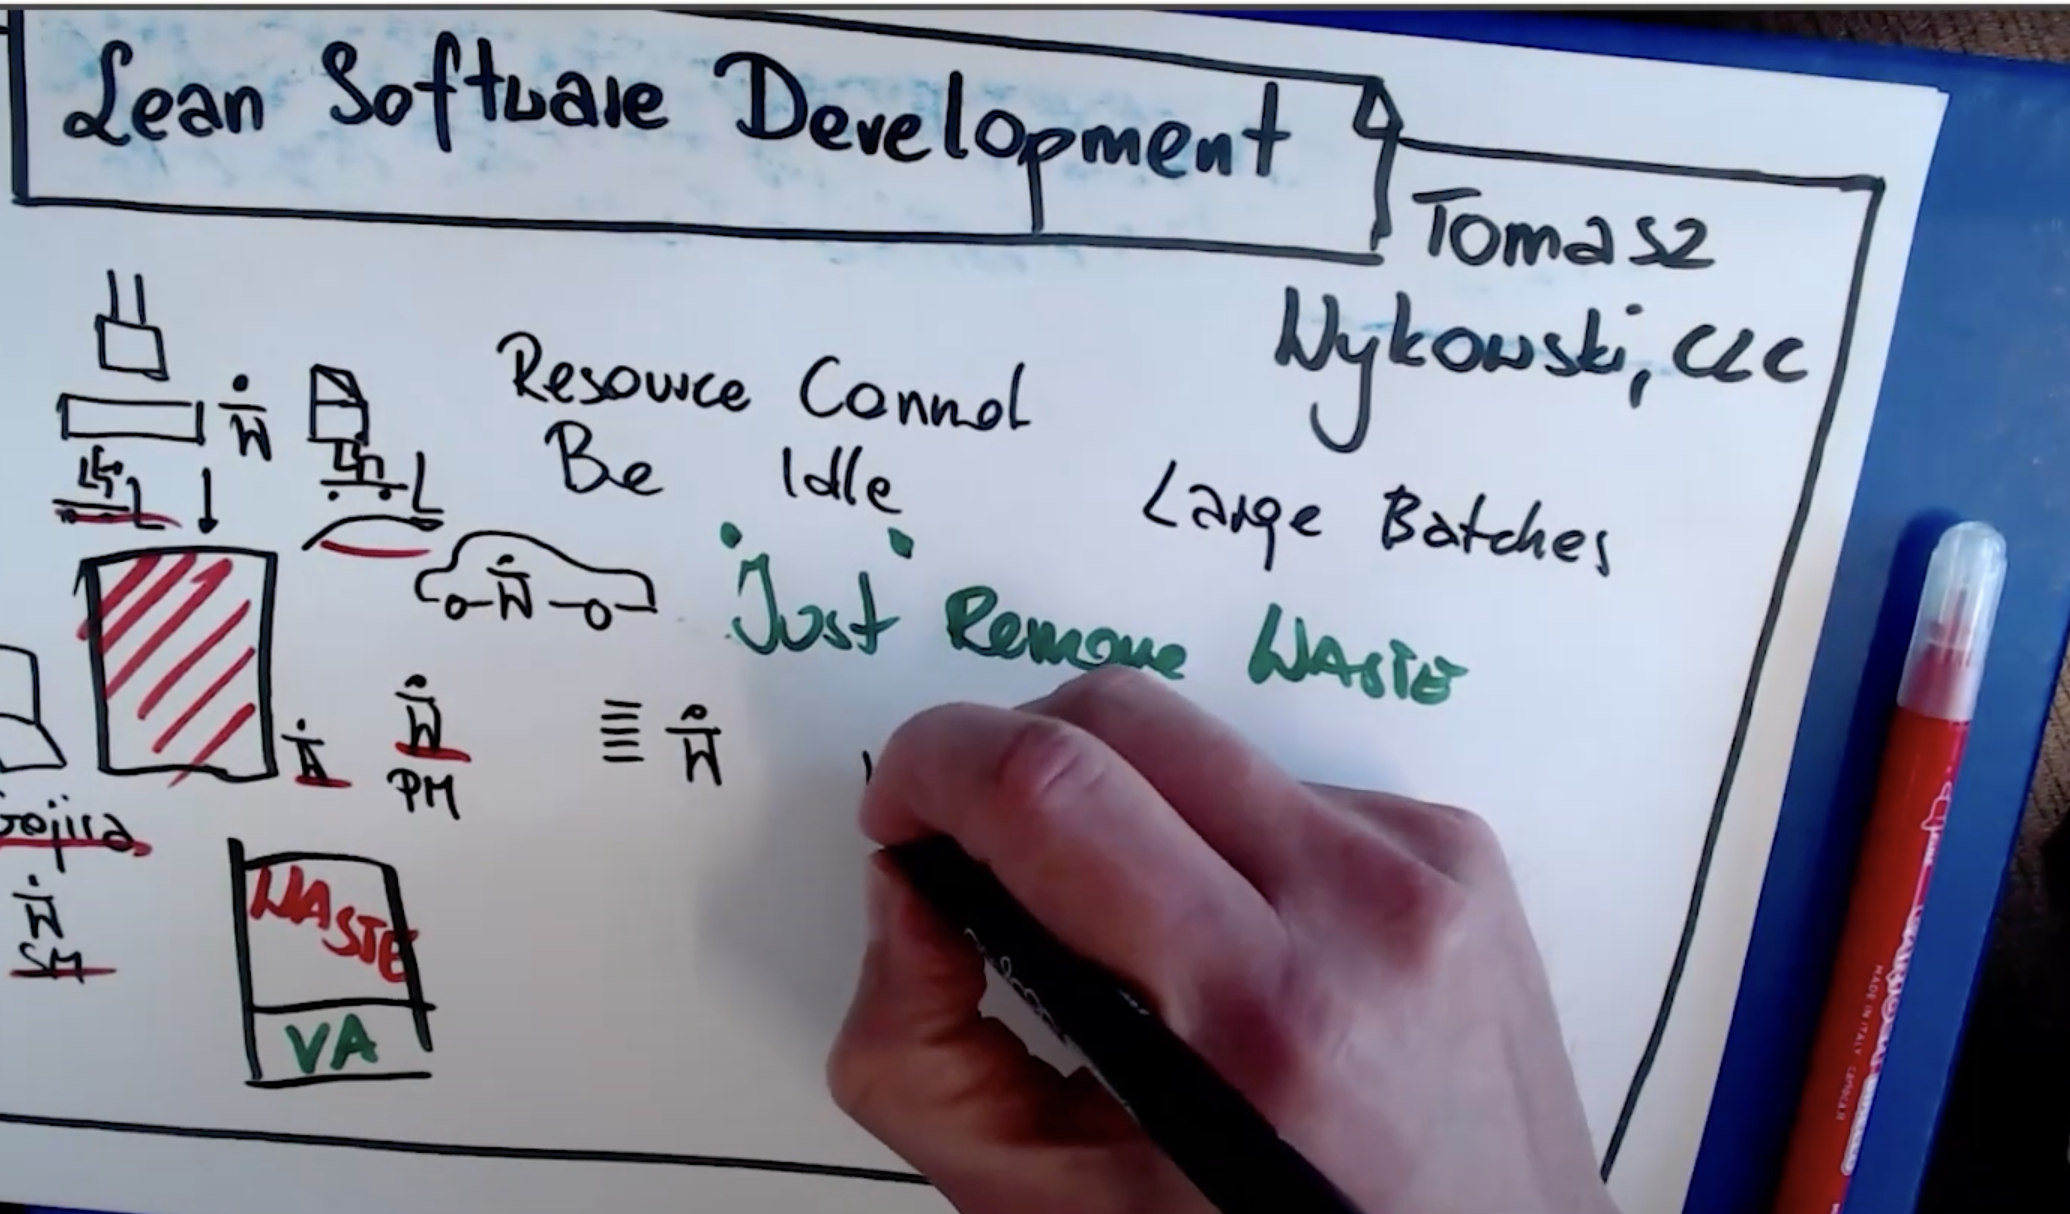 Lean Software Development
Tomasz
Wykowski, CLC
Resource Cannot
Be Idle
Large Batches
Just Remove WASTE
PM
Gojira
SM
WASTE
VA
MADE IN ITALY